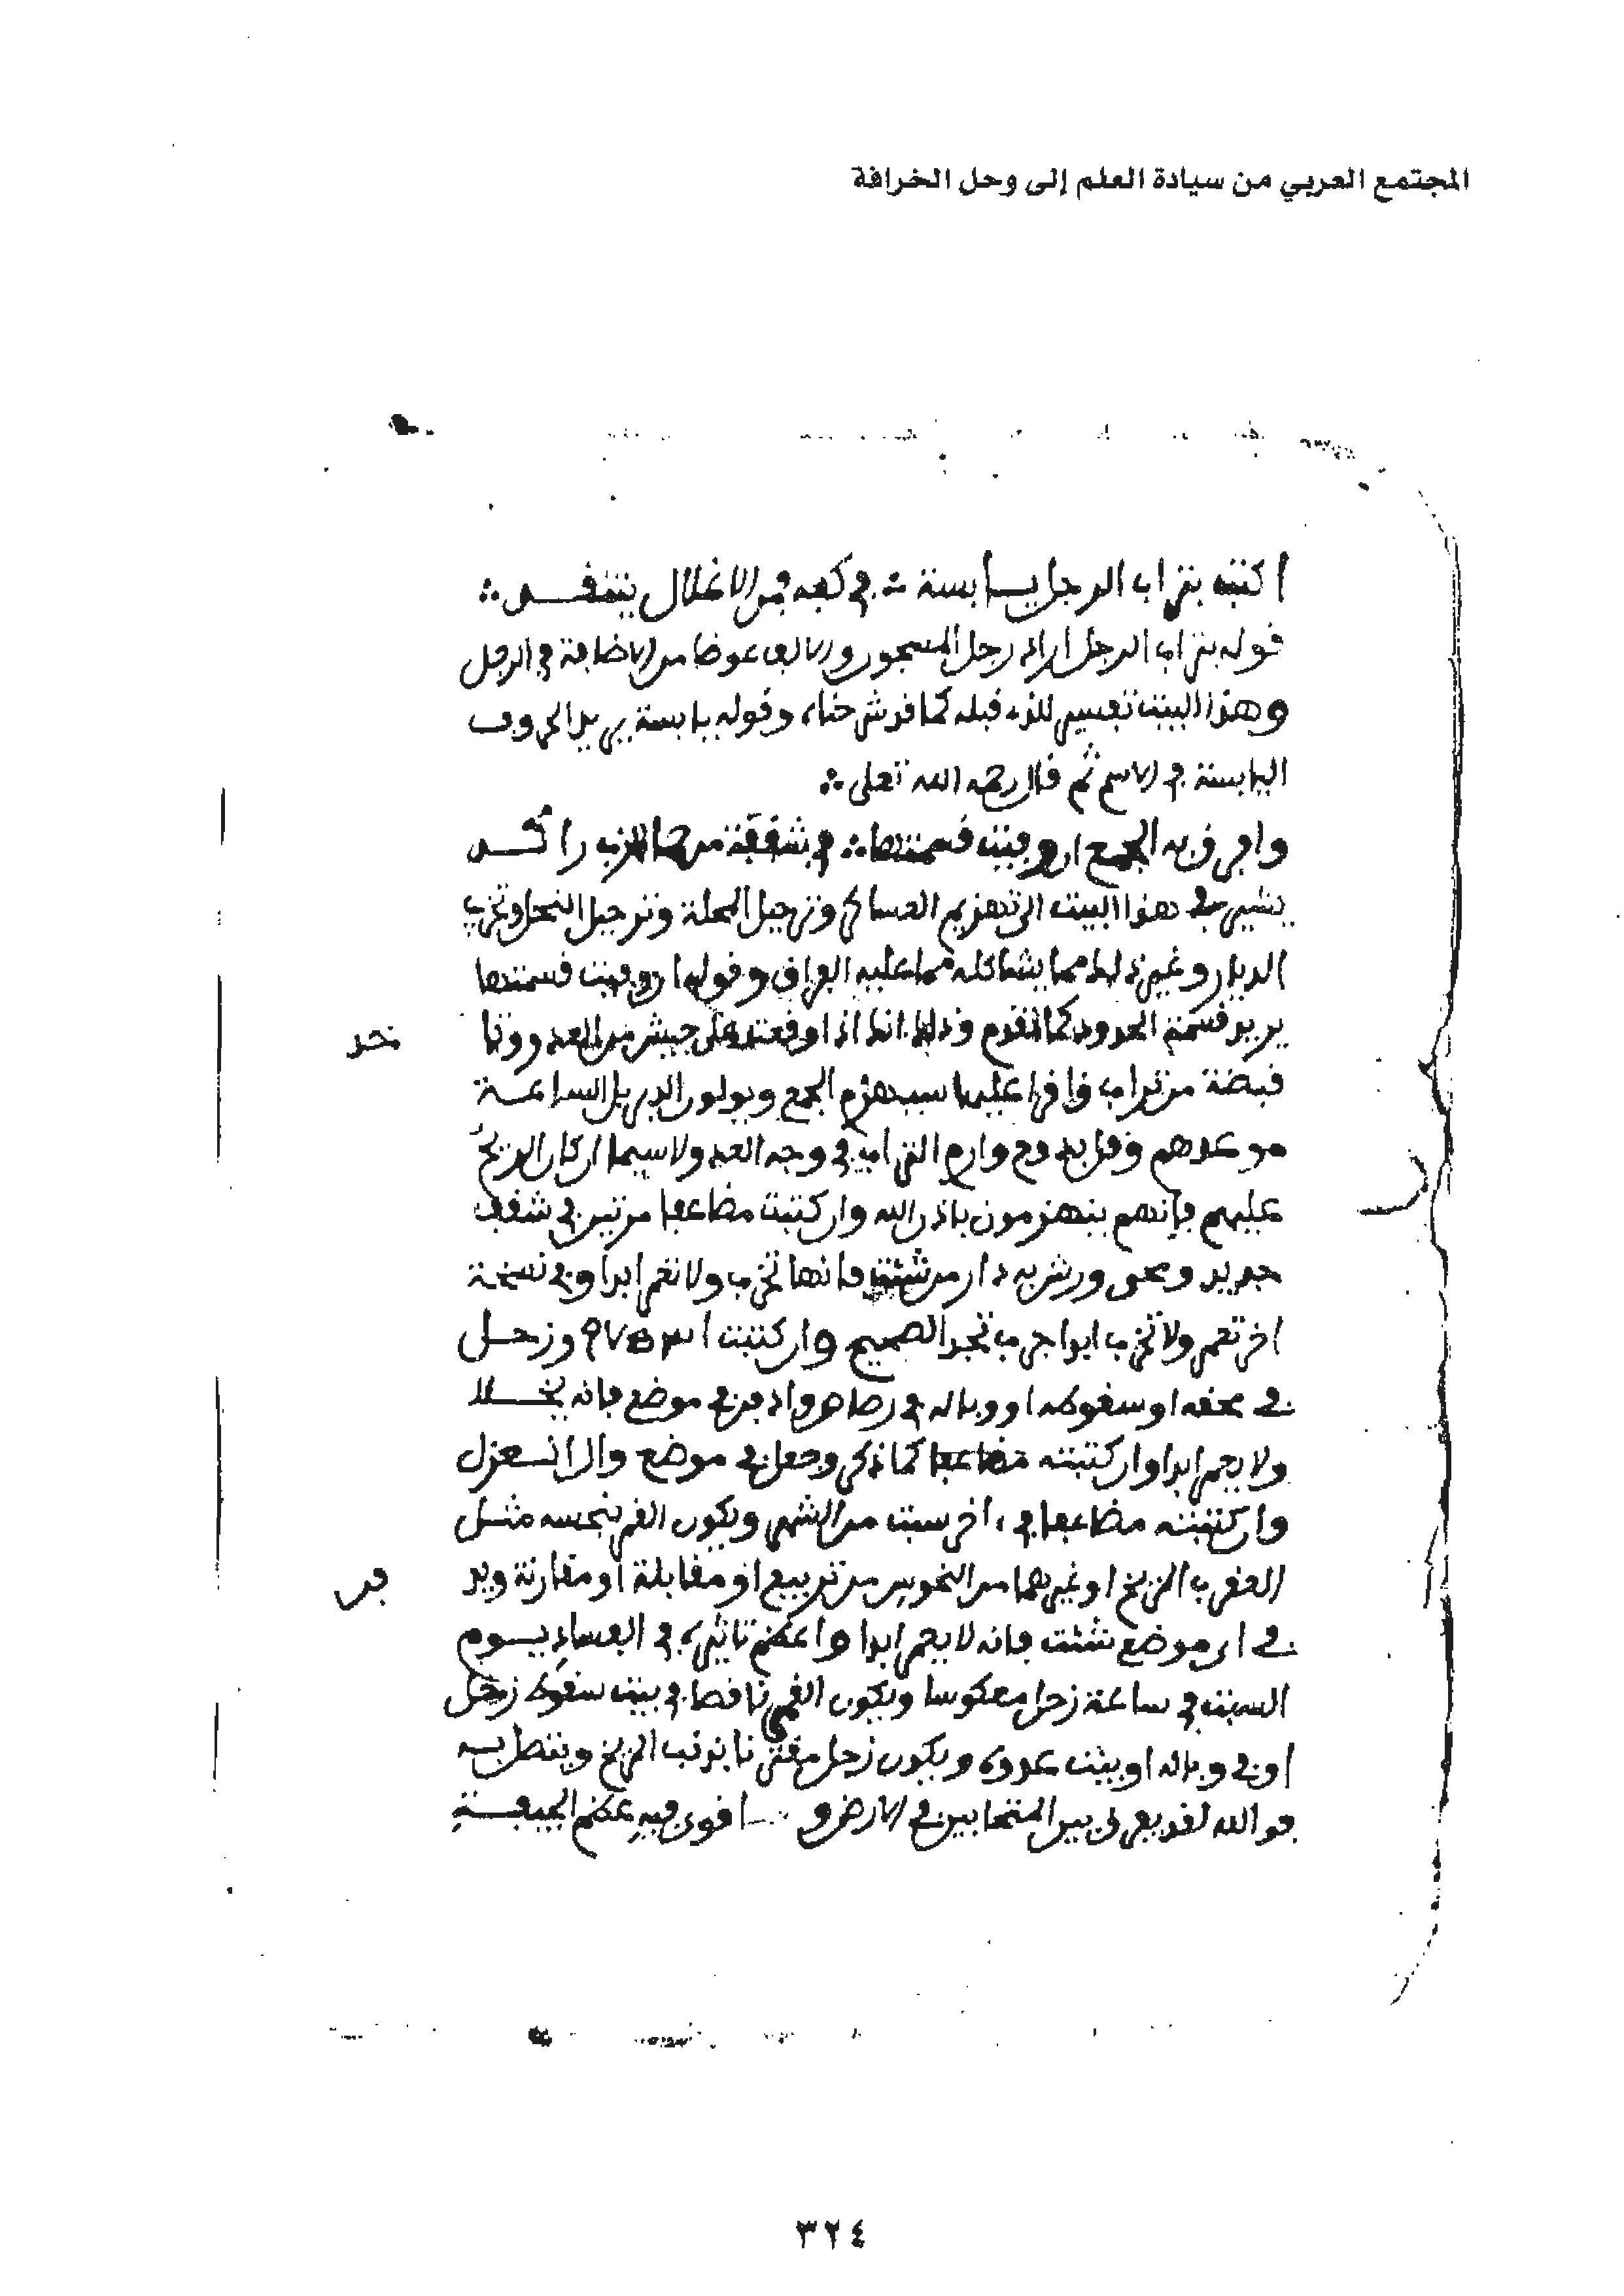 المجتمع العربي من سيادة العلم إلى وحل الخرافة
اكتبه بتراب الرجل يابسة ∴ في كفه من الاغلال
قوله بتراب الرجل اراد رجل المسحور والالف عوضا من الاضافة في الرجل
وهذا البيت تفسير للذي قبله كما قد شرحناه وقوله يابسة يريد الحروف
اليابسة في الاسم ثم قال رحمه الله تعلى ∴
وافرق به الجمع ان وفيت قسمتها ∴ في شقفة من
يشير في هذا البيت الى تهزيم العساكر وترحيل المحلة وترحيل النحل وتخريب
الديار وغير ذلك مما يشاكله مما عليه الفراق وقوله ان وفيت قسمتها
يريد قسمة الحروف كما تقدم وذلك انك اذا وقعت على جيش من العدو
تخذ
قبضة من تراب واقرا عليها سيهزم الجمع ويولون الدبر بل الساعة
موعدهم وارم التراب في وجه العدو لا سيما ان كان الريح
عليهم فإنهم ينهزمون باذن الله وان كتبت مضاعفا مرتين في شقف
جديد ومحي ورش به دار من شئت فانها تخرب ولا تعمر ابدا وفي نسخة
اخر تعمر ولا تخرب ابدا جرب تجد الصحيح وان كتبت وزحل
في او سقوطه او وباله في رصاص وادفن في موضع فانه يخلا
ولا يعمر ابدا وان كتبته مضاعفا كما ذكر وجعل في موضع وال انعزل
وان كتبته مضاعفا في ءاخر سبت من الشهر ويكون القمر بنحسه مثل
العقرب المريخ او غيرهما من النحوس من تربيع او مقابلة او مقارنة ويد
فن
في اي موضع شئت فانه لا يعمر ابدا واعظم تاثيره في الفساد يوم
السبت في ساعة زحل معكوسا ويكون القمر ناقصا في بيت سقوط زحل
او في وباله او بيت عدوه ويكون زحل مقترنا بذنب المريخ وينظر به
فوالله لقد يفرق بين المتحابين في الارض و اقوى فيه عظم الجيفة
٣٢٤